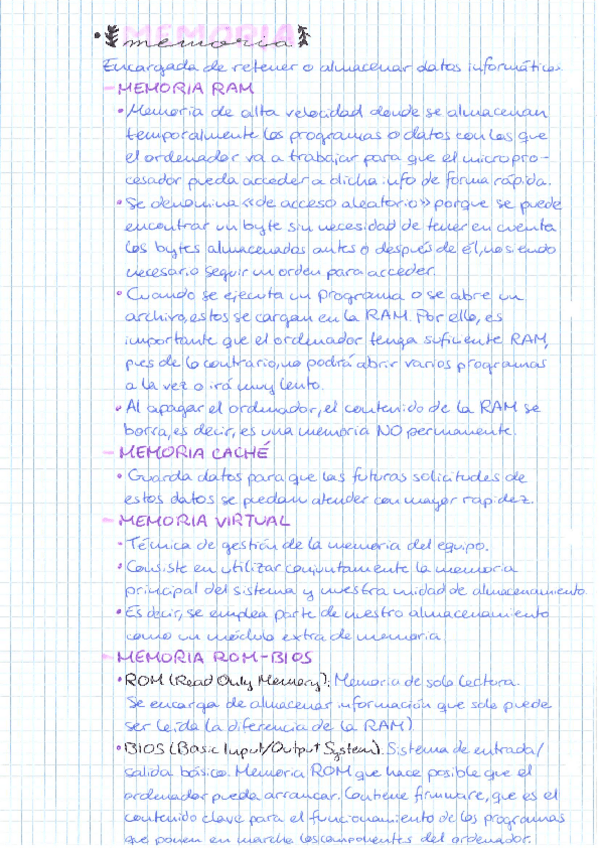 MEMORIA
memoria
Encargada de retener o almacenar datos informáticos.
- MEMORIA RAM
• Memoria de alta velocidad donde se almacenan
temporalmente los programas o datos con los que
el ordenador va a trabajar para que el micropro-
cesador pueda acceder a dicha info de forma rápida.
• Se denomina «de acceso aleatorio» porque se puede
encontrar un byte sin necesidad de tener en cuenta
los bytes almacenados antes o después de él, no siendo
necesario seguir un orden para acceder.
• Cuando se ejecuta un programa o se abre un
archivo, estos se cargan en la RAM. Por ello, es
importante que el ordenador tenga suficiente RAM,
pues de lo contrario, no podrá abrir varios programas
a la vez o irá muy lento.
• Al apagar el ordenador, el contenido de la RAM se
borra, es decir, es una memoria NO permanente.
- MEMORIA CACHÉ
• Guarda datos para que las futuras solicitudes de
estos datos se puedan atender con mayor rapidez.
- MEMORIA VIRTUAL
• Técnica de gestión de la memoria del equipo.
• Consiste en utilizar conjuntamente la memoria
principal del sistema y nuestra unidad de almacenamiento
• Es decir, se emplea parte de nuestro almacenamiento
como un módulo extra de memoria
- MEMORIA ROM-BIOS
• ROM (Read Only Memory): Memoria de solo lectura.
Se encarga de almacenar información que solo puede
ser leída (a diferencia de la RAM)
• BIOS (Basic Input/Output System). Sistema de entrada/
salida básico. Memoria ROM que hace posible que el
ordenador pueda arrancar. Contiene firmware, que es el
contenido clave para el funcionamiento de los programas
que ponen en marcha los componentes del ordenador.